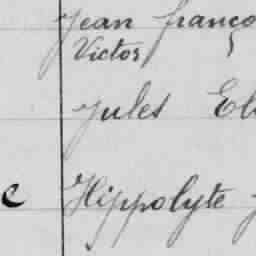 Jean Franço
Victor
Jules El
c Hippolyte